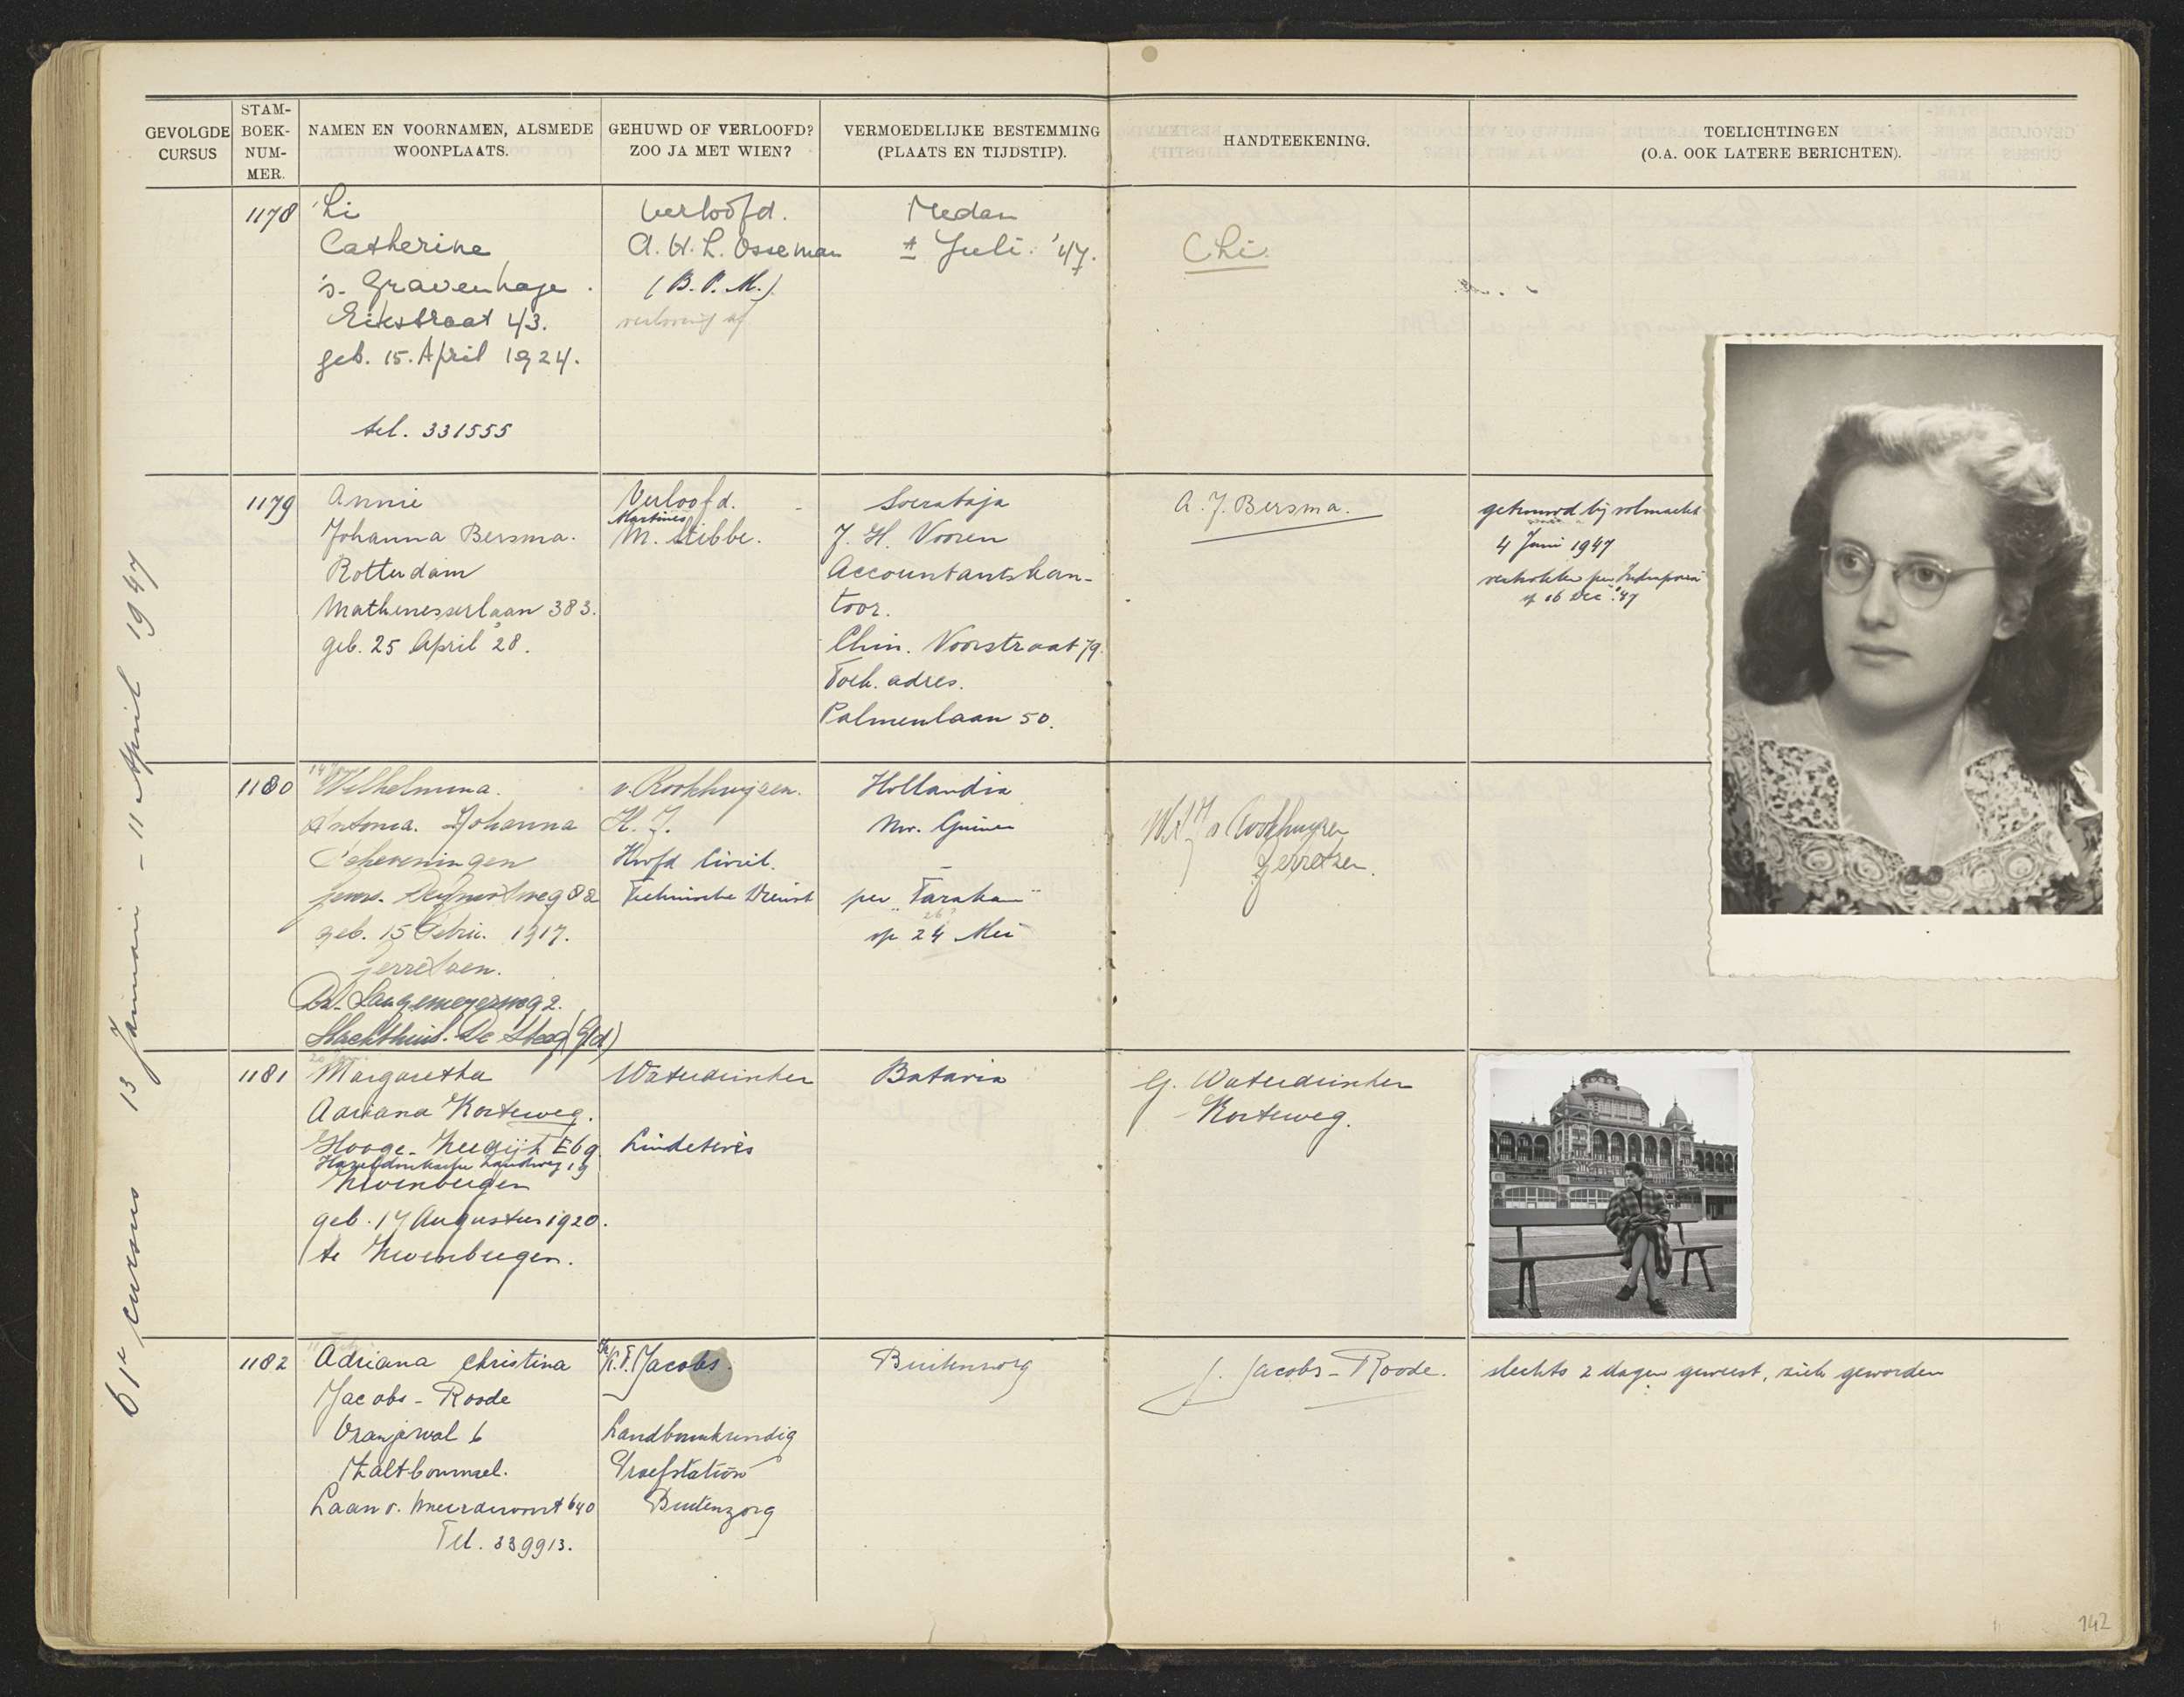 GEVOLGDE CURSUS
STAM-BOEK-NUM-MER.
NAMEN EN VOORNAMEN, ALSMEDE WOONPLAATS.
GEHUWD OF VERLOOFD? ZOO JA MET WIEN?
VERMOEDELIJKE BESTEMMING (PLAATS EN TIJDSTIP).
HANDTEEKENING.
TOELICHTINGEN (O.A. OOK LATERE BERICHTEN).
61e cursus 13 Januari - 11 April 1947
1178
Li
Catherine
's-Gravenhage.
Eikstraat 43.
geb. 15. April 1924.
tel. 331555
verloofd.
A. H. L. Osseman
(B.P.M.)
verloving af
Medan
± Juli. '47.
CLi.
1179
Annie
Johanna Bersma.
Rotterdam
Mathenesserlaan 383.
geb. 25 April '28.
Verloofd.
Martinus
M. Stibbe.
Soerabaja
J. H. Vooren
Accountantskan-
toor.
Chin. Voorstraat 79.
Toek. adres.
Palmenlaan 50.
A. J. Bersma.
getrouwd bij volmacht
4 Juni 1947
vertrokken per Indrapoera
op 16 Dec '47
1180
Wilhelmina.
Antonia. Johanna
Scheveningen
88
geb. 15 Febru. 1917.
Gerretsen.
2.
De Steeg (Gld)
v. Rookhuyzen.
H. J.
Hoofd Civiel.
Technische Dienst
Hollandia
Nw. Guinea
-
per "Tarakan"
26?
op 24 Mei
v Rookhuyzen
Gerretsen.
1181
Margaretha
Adriana Korteweg.
Hooge-Zeedijk E69
Hazeldonksche Zandweg 19
Zevenbergen
geb. 17 Augustus 1920.
te Zevenbergen.
Waterdrinker
Lindeteves
Batavia
G. Waterdrinker
Korteweg.
1182
Adriana Christina
Jacobs - Roode
Oranjewal 6
Zaltbommel.
Laan v. Meerdervoort 640
Tel. 339913.
K.F. Jacobs.
Landbouwkundig
Proefstation
Buitenzorg
Buitenzorg
J. Jacobs-Roode.
slechts 2 dagen geweest, ziek geworden
142